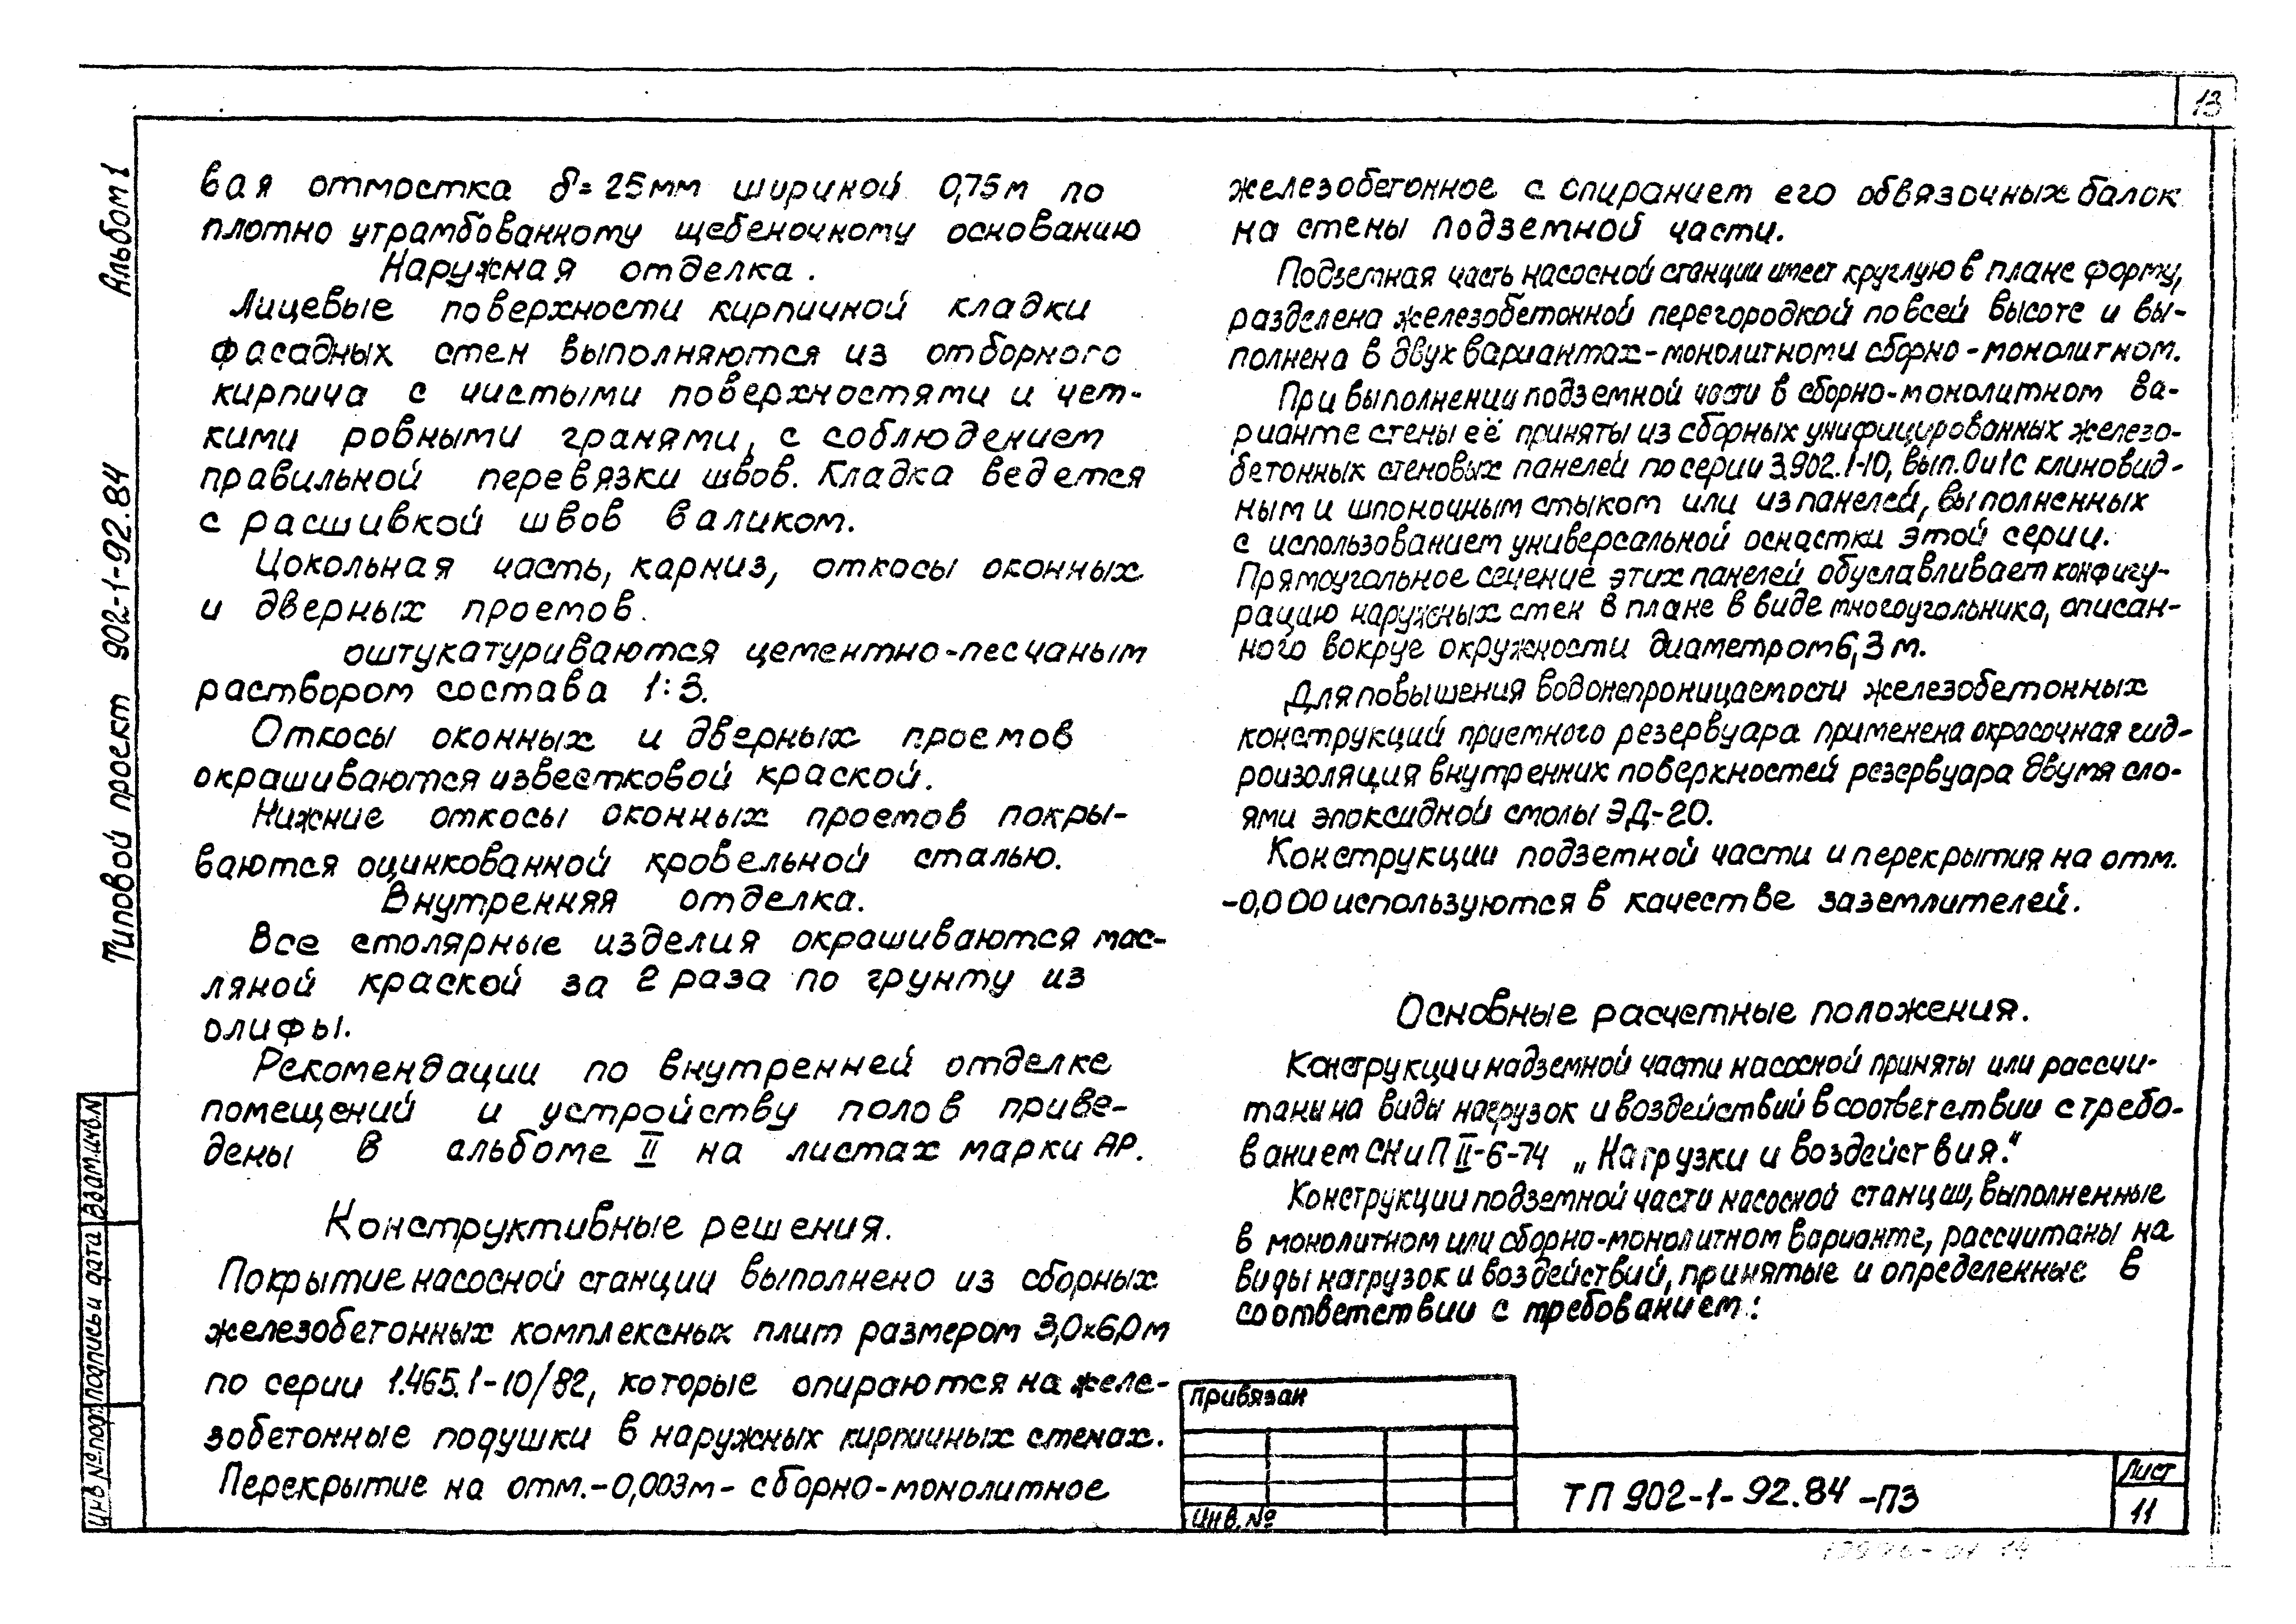 13
Альбом 1
Типовой проект 902-1-92.84
вая отмостка δ=25мм шириной 0,75м по
плотно утрамбованному щебеночному основанию
Наружная отделка.
Лицевые поверхности кирпичной кладки
фасадных стен выполняются из отборного
кирпича с чистыми поверхностями и чет-
кими ровными гранями, с соблюдением
правильной перевязки швов. Кладка ведется
с расшивкой швов валиком.
Цокольная часть, карниз, откосы оконных
и дверных проемов.
оштукатуриваются цементно-песчаным
раствором состава 1:3.
Откосы оконных и дверных проемов
окрашиваются известковой краской.
Нижние откосы оконных проемов покры-
ваются оцинкованной кровельной сталью.
Внутренняя отделка.
Все столярные изделия окрашиваются мас-
ляной краской за 2 раза по грунту из
олифы.
Рекомендации по внутренней отделке
помещений и устройству полов приве-
дены в альбоме II на листах марки АР.
Конструктивные решения.
Покрытие насосной станции выполнено из сборных
железобетонных комплексных плит размером 3,0х6,0м
по серии 1.465.1-10/82, которые опираются на желе-
зобетонные подушки в наружных кирпичных стенах.
Перекрытие на отм.-0,003м- сборно-монолитное
железобетонное с опиранием его обвязочных балок
на стены подземной части.
Подземная часть насосной станции имеет круглую в плане форму,
разделена железобетонной перегородкой по всей высоте и вы-
полнена в двух вариантах-монолитном и сборно-монолитном.
При выполнении подземной части в сборно-монолитном ва-
рианте стены её приняты из сборных унифицированных железо-
бетонных стеновых панелей по серии 3.902.1-10, вып.0и1с клиновид-
ным и шпоночным стыком или из панелей, выполненных
с использованием универсальной оснастки этой серии.
Прямоугольное сечение этих панелей обуславливает конфигу-
рацию наружных стен в плане в виде многоугольника, описан-
ного вокруг окружности диаметром 6,3 м.
Для повышения водонепроницаемости железобетонных
конструкций приемного резервуара применена окрасочная гид-
роизоляция внутренних поверхностей резервуара двумя сло-
ями эпоксидной смолы ЭД-20.
Конструкции подземной части и перекрытия на отм.
-0,000 используются в качестве заземлителей.
Основные расчетные положения.
Конструкции надземной части насосной приняты или рассчи-
таны на виды нагрузок и воздействий в соответствии с требо-
ванием СНиП II-6-74 „Нагрузки и воздействия."
Конструкции подземной части насосной станции, выполненные
в монолитном или сборно-монолитном варианте, рассчитаны на
виды нагрузок и воздействий, принятые и определенные в
соответствии с требованием:
Взам.инв.N
Подпись и дата
Инв № под.
Привязан
Инв. №
ТП 902-1-92.84-ПЗ
Лист
11